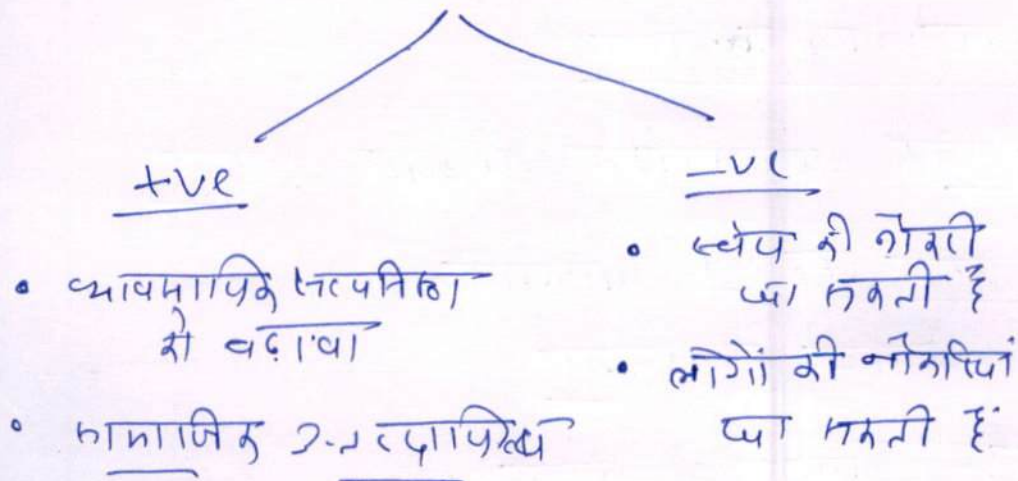 +ve
• व्यावसायिक सत्यनिष्ठा
को बढ़ावा
• सामाजिक उत्तरदायित्व
-ve
• स्वयं की नौकरी
जा सकती है
• लोगों की नौकरियां
जा सकती हैं